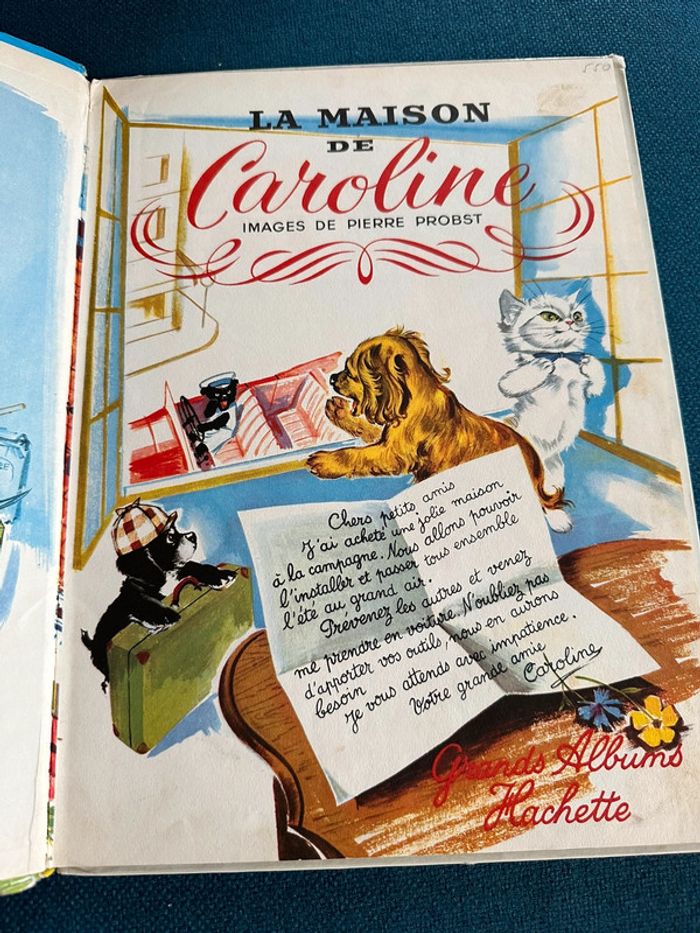 550
LA MAISON
DE
Caroline
IMAGES DE PIERRE PROBST
Chers petits amis
J'ai acheté une jolie maison
à la campagne. Nous allons pouvoir
l'installer et passer tous ensemble
l'été au grand air.
Prévenez les autres et venez
me prendre en voiture. N'oubliez pas
d'apporter vos outils, nous en aurons
besoin
Je vous attends avec impatience.
Votre grande amie
Caroline
Grands Albums
Hachette